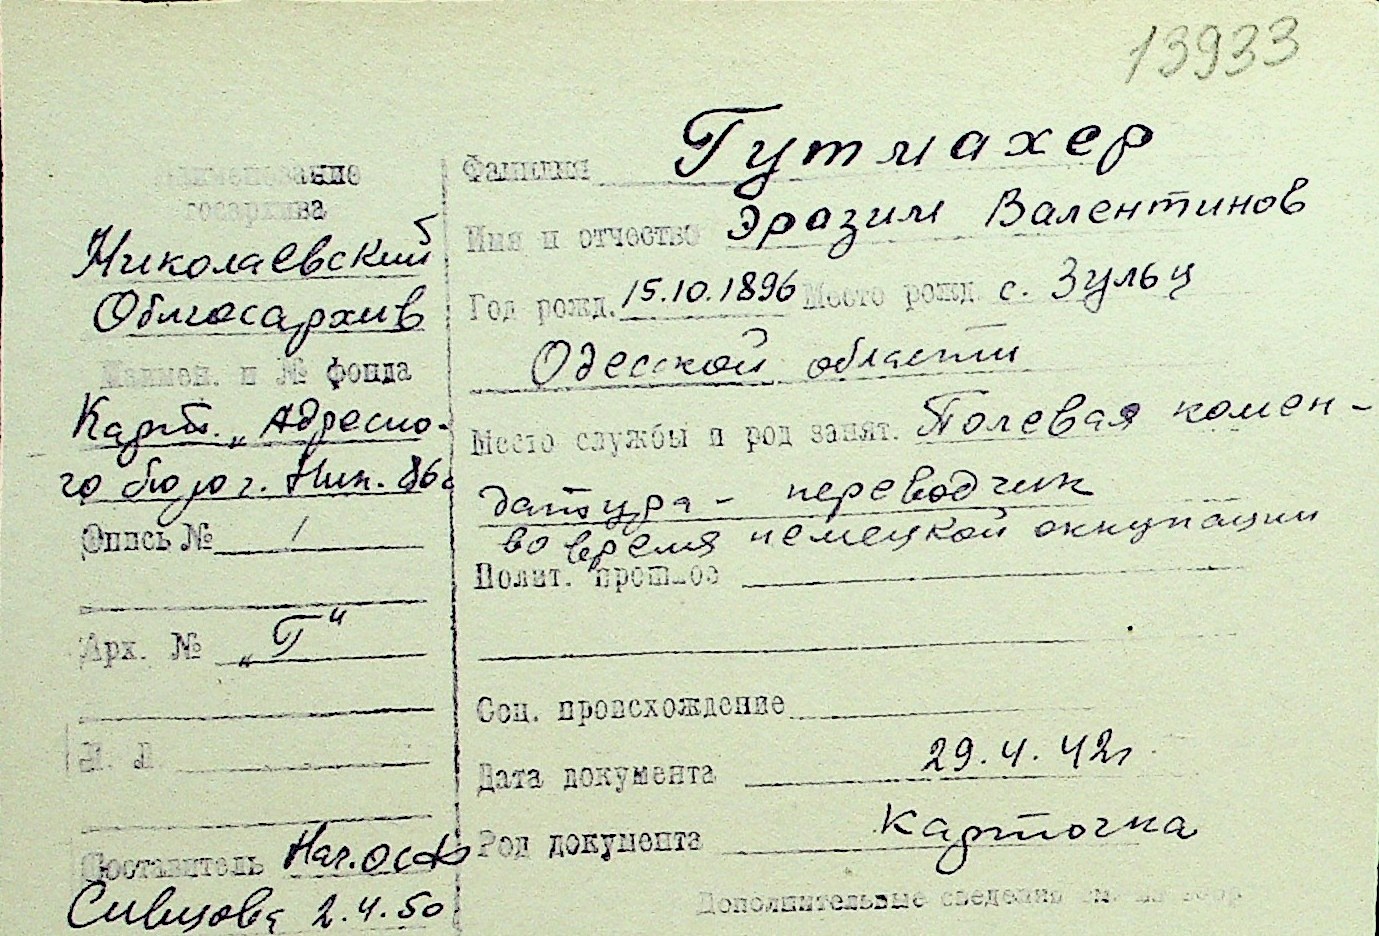 13933
Наименование
госархива
Николаевский
Облгосархив
Наимен. и № фонда
Карт. „Адресно-
го бюро г. Ник.
Опись № 1
Арх. № „Г"
Л. Л.
Составитель Нач. ОСФ
Сивцова 2.4.50
Фамилия Гутмахер
Имя и отчество Эразим Валентинов
Год рожд. 15.10.1896 Место рожд. с. Зульц
Одесской области
Место службы и род занят. Полевая комен-
датура - переводчик
во время немецкой оккупации
Полит. прошлое
Соц. происхождение
Дата документа 29.4.42г
Род документа Карточка
Дополнительные сведения см. на обор.